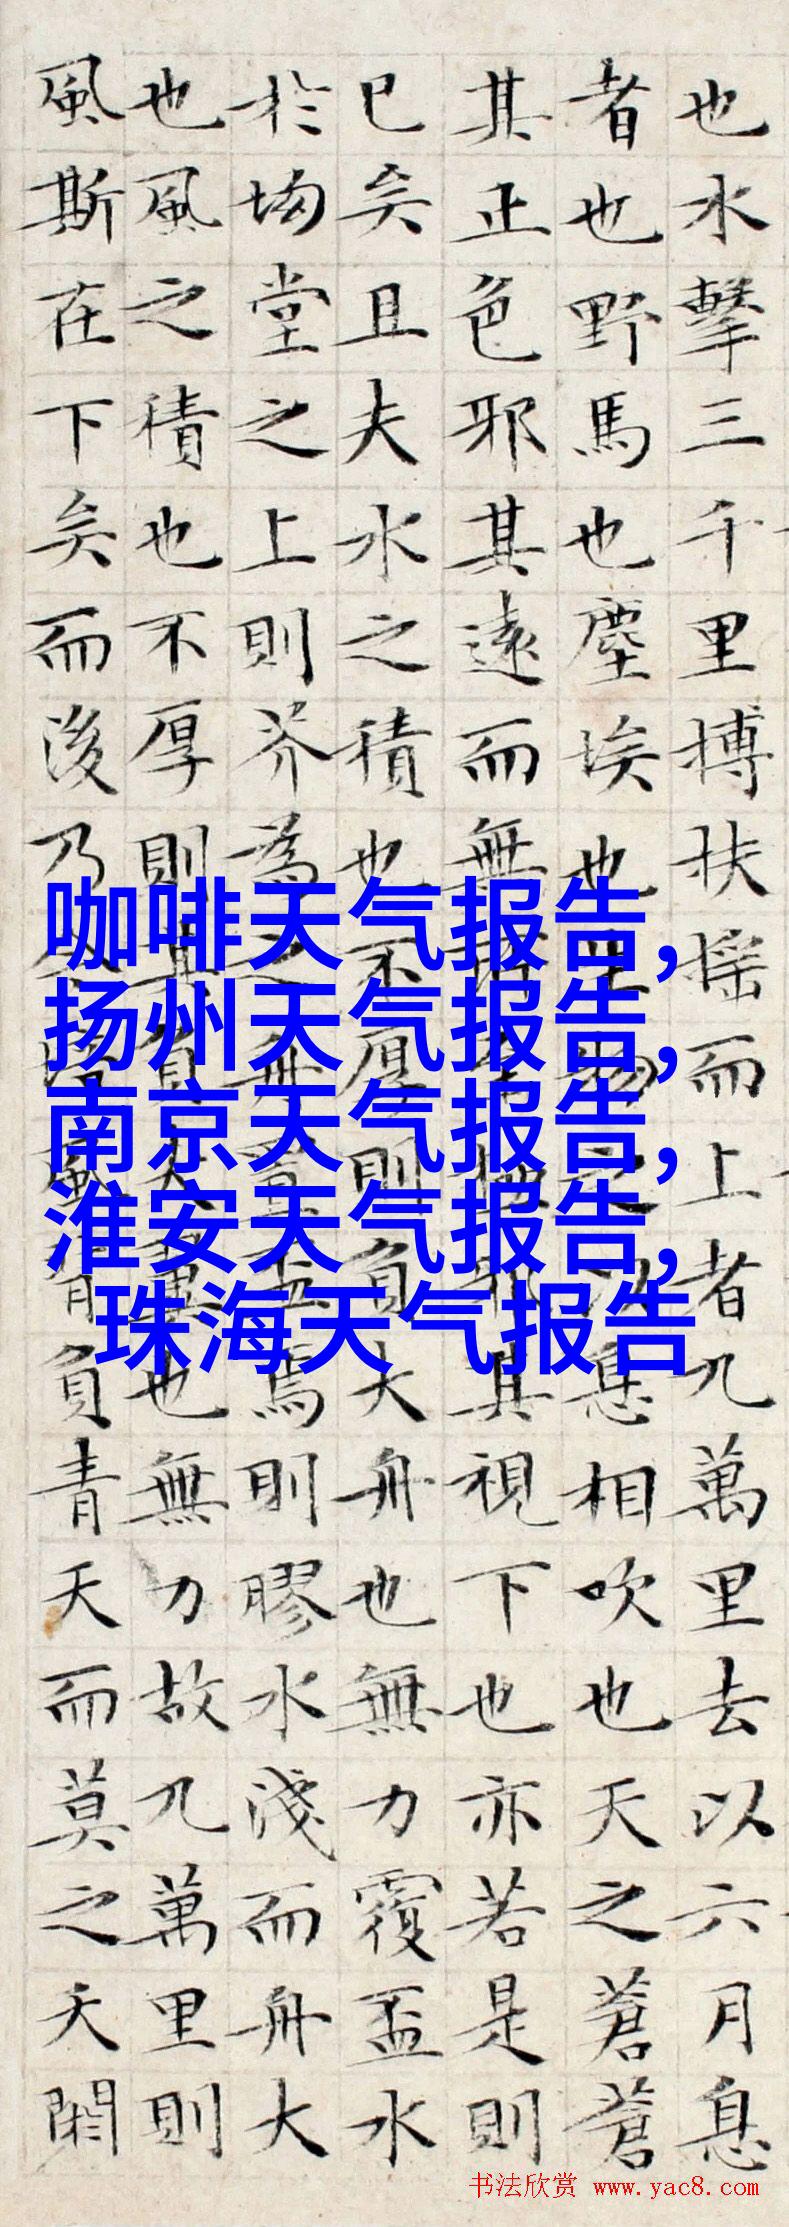 也水擊三千里搏扶搖而上者九萬里去以六月息
者也野馬也塵埃也生物之以息相吹也天之蒼蒼
其正色邪其遠而無所至極邪其視下也亦若是則
已矣且夫水之積也不厚則負大舟也無力覆盃水
於坳堂之上則芥為之舟置盃焉則膠水淺而舟大
也風之積也不厚則其負大翼也無力故九萬里則
風斯在下矣而後乃今培風背負青天而莫之夭閼
咖啡天气报告,
扬州天气报告,
南京天气报告,
淮安天气报告,
珠海天气报告
书法欣赏 www.yac8.com